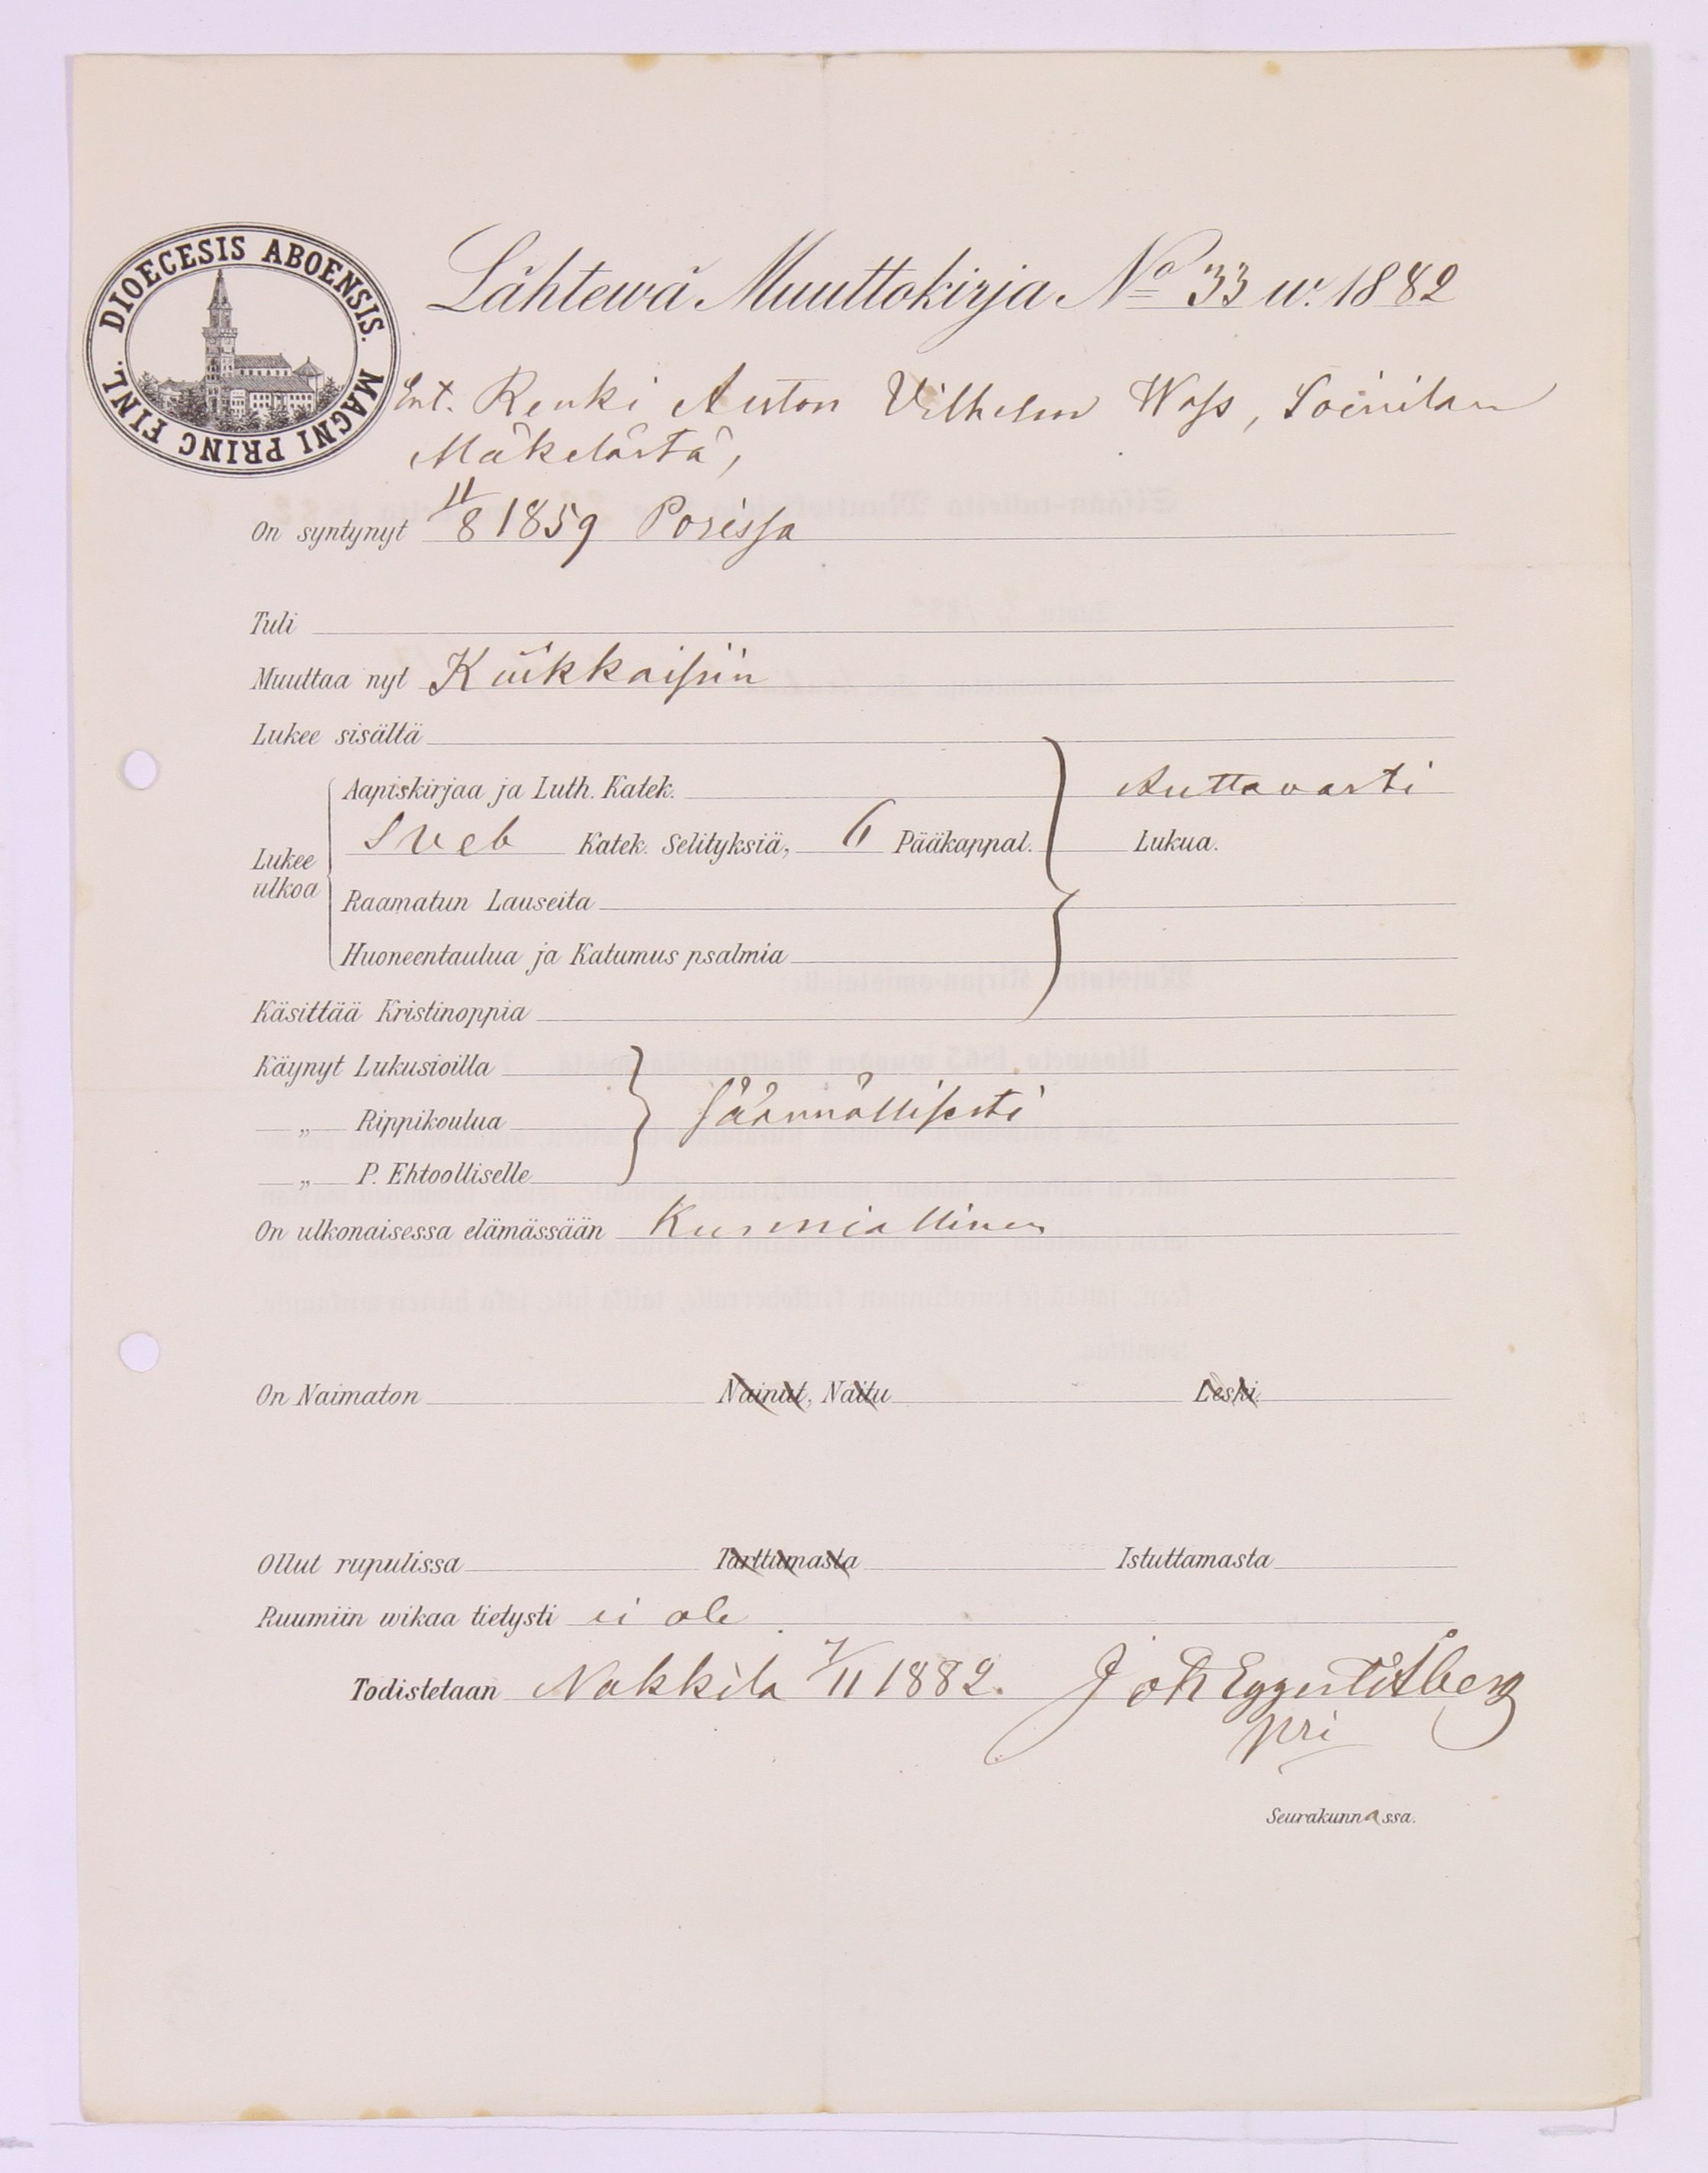 DIOECESIS ABOENSIS. MAGNI PRINC FINL.
Lähtewä Muuttokirja No 33 w. 1882
Ent. Renki Anton Vilhelm Wass, Soinilan
Mäkelästä,
On syntynyt 11/8 1859 Porissa
Tuli
Muuttaa nyt Kiikkaisiin
Lukee sisältä
Aapiskirjaa ja Luth. Katek. Auttavasti
Lukee ulkoa Sveb Katek. Selityksiä, 6 Pääkappal. Lukua.
Raamatun Lauseita
Huoneentaulua ja Katumus psalmia
Käsittää Kristinoppia
Käynyt Lukusioilla
„ Rippikoulua säännöllisesti
„ P. Ehtoolliselle
On ulkonaisessa elämässään Kunniallinen
On Naimaton Nainut, Naitu Leski.
Ollut rupulissa Tarttumasta Istuttamasta
Ruumiin wikaa tietysti ei ole
Todistetaan Nakkila 7/11 1882. Joh Eggert
Seurakunnassa.